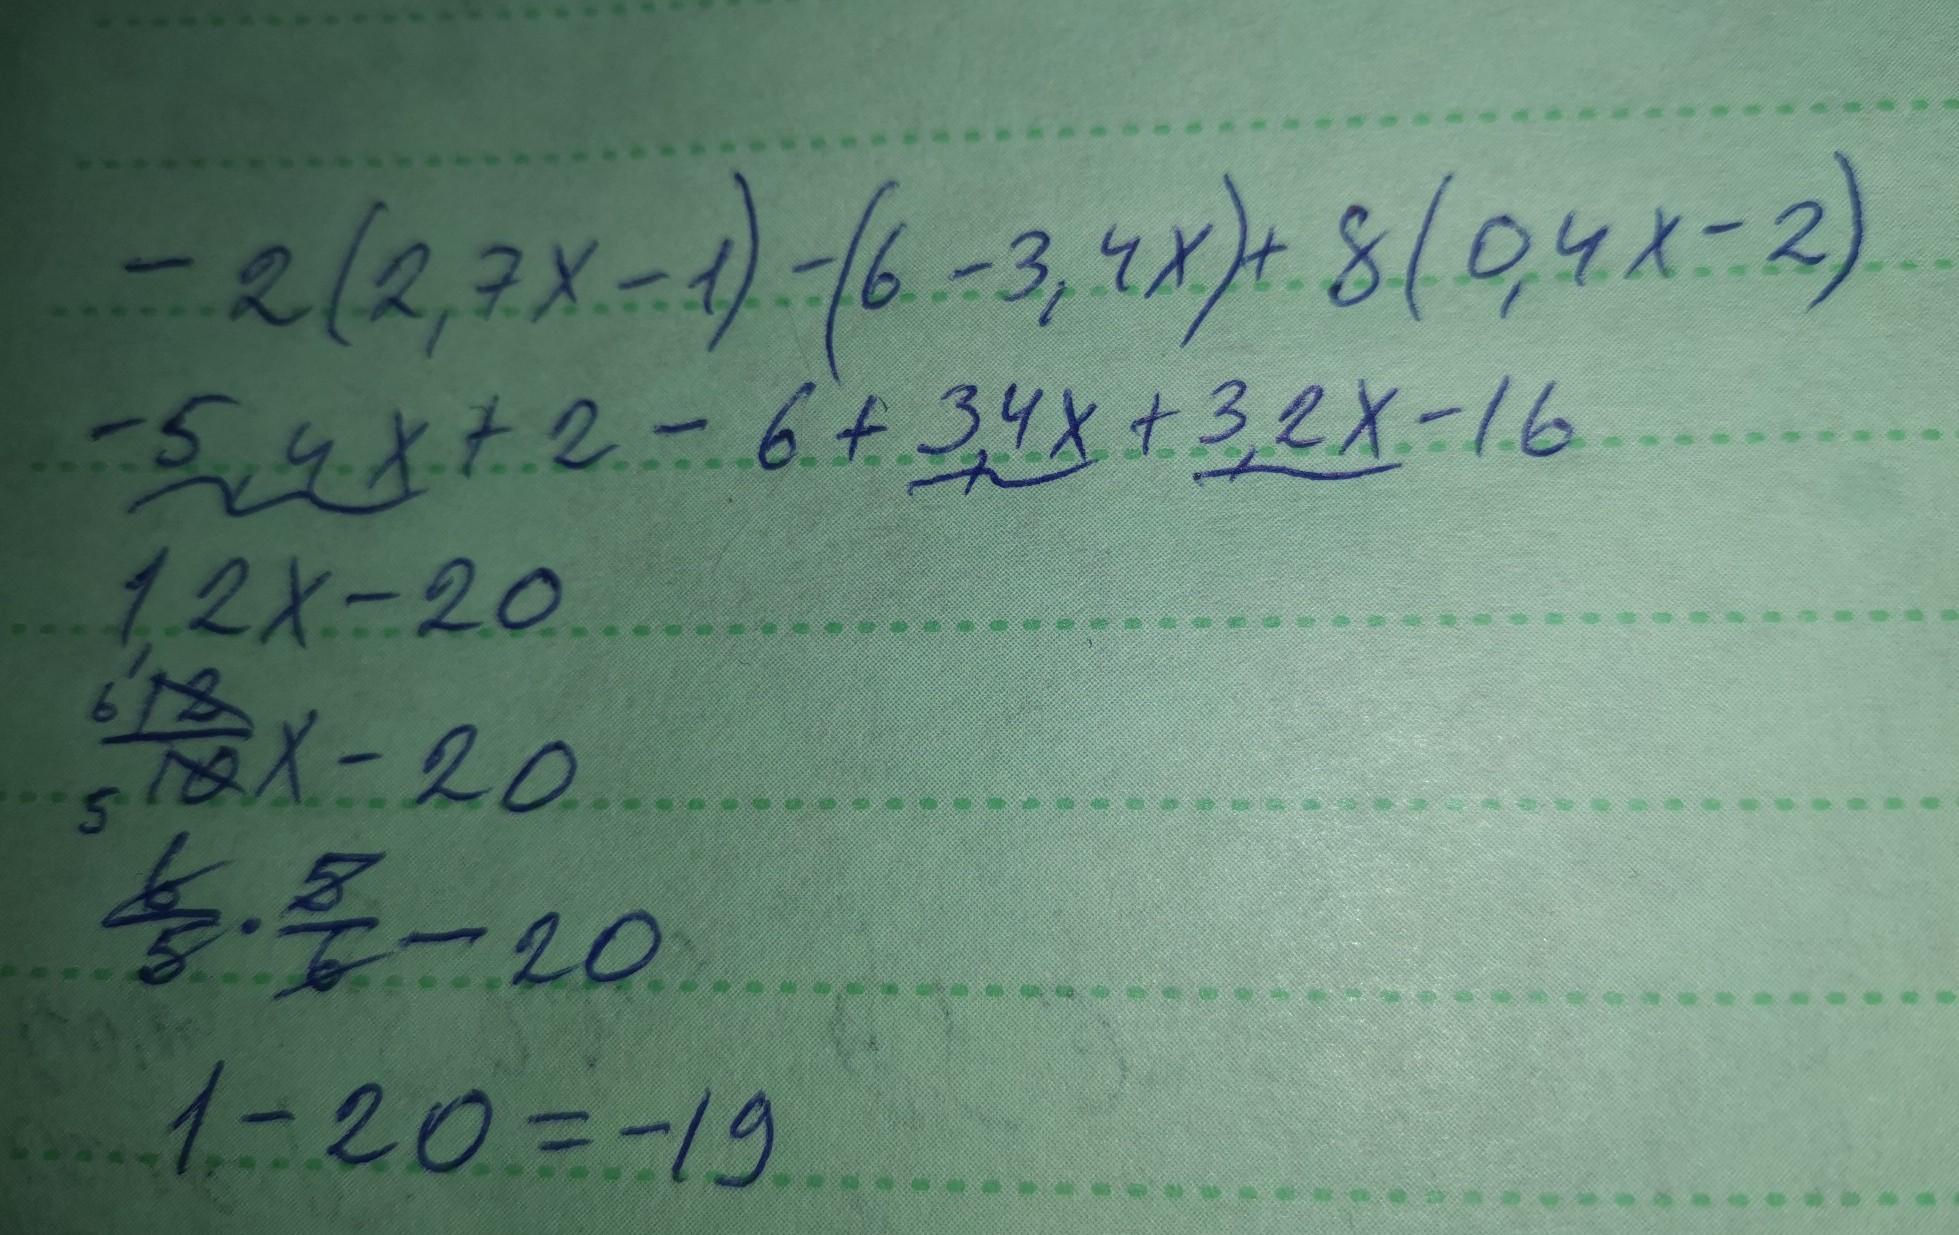 -2(2,7x-1)-(6-3,4x)+8(0,4x-2)
-5,4x+2-6+3,4x+3,2x-16
1,2x-20
12/10x-20
6
5
6/5·5/6-20
1-20=-19